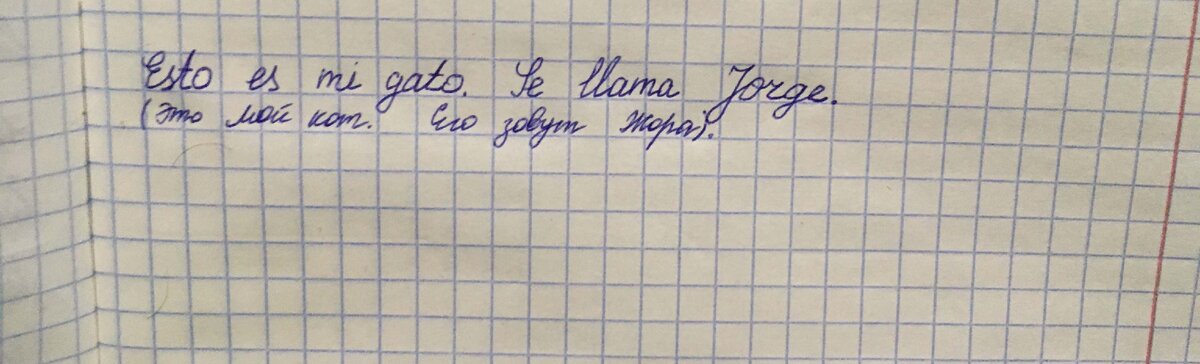 Esto es mi gato. Se llama Jorge.
(Это мой кот. Его зовут Жора).